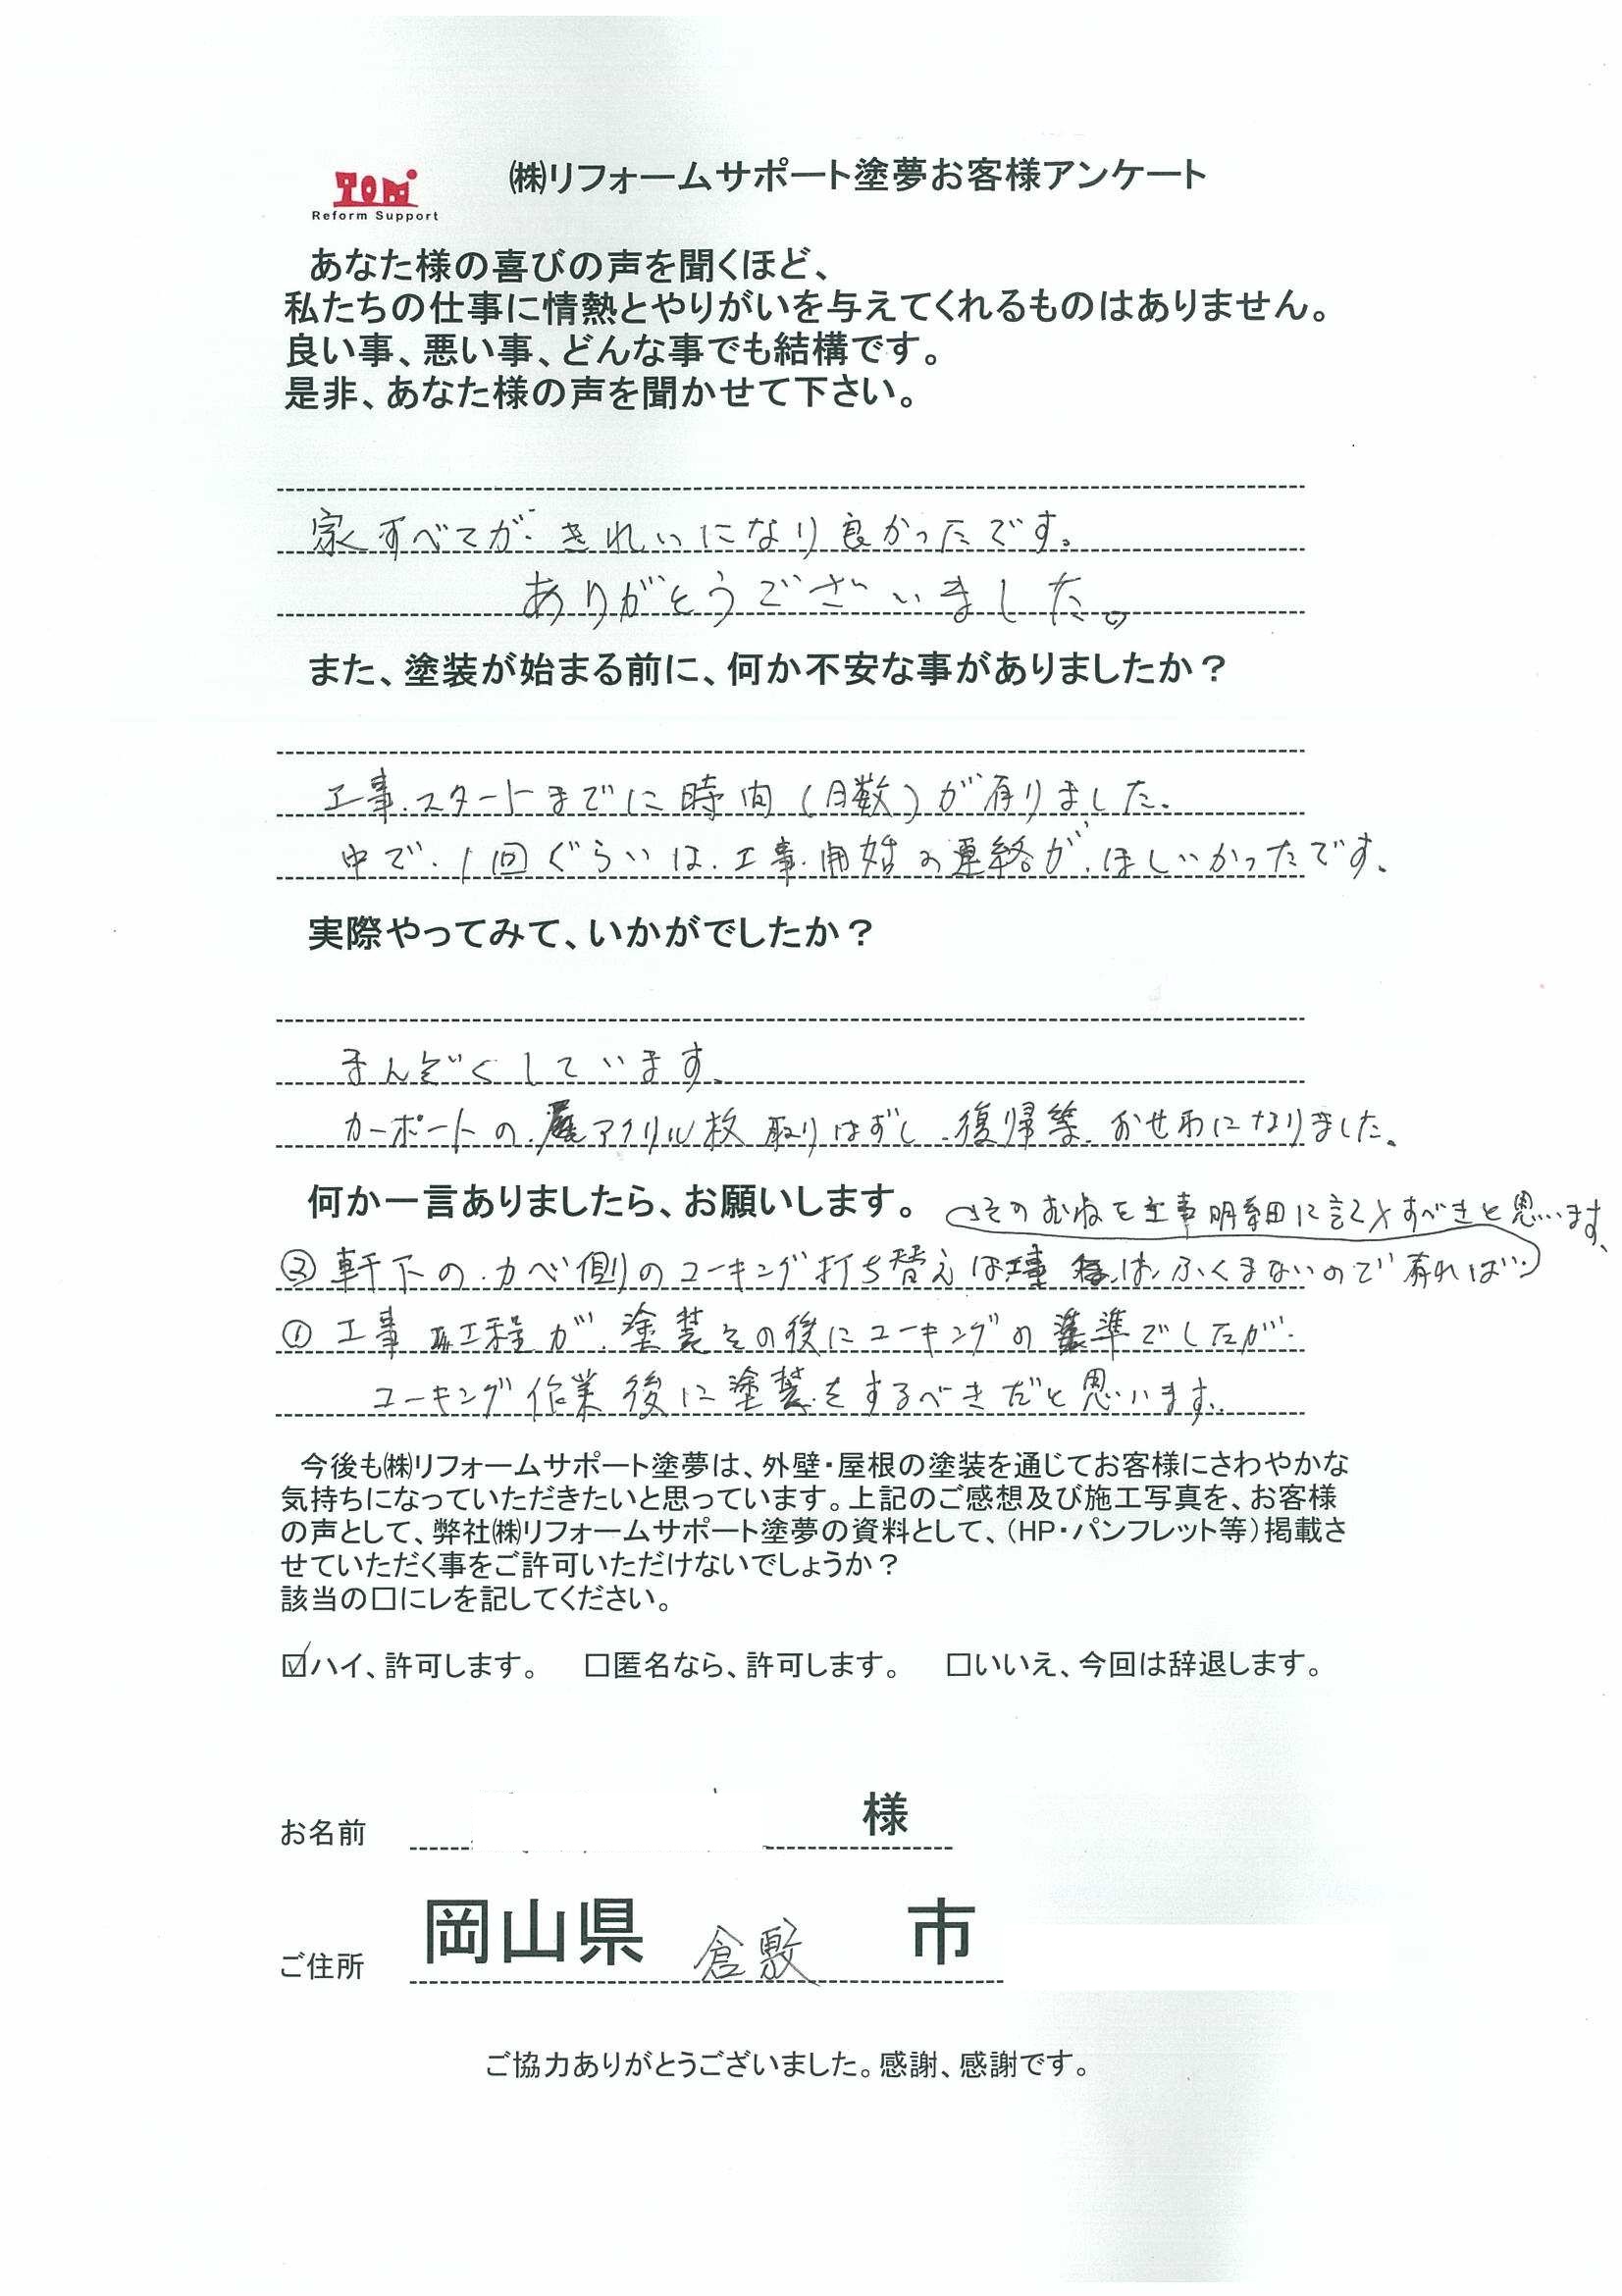 TOM
Reform Support
㈱リフォームサポート塗夢お客様アンケート
あなた様の喜びの声を聞くほど、
私たちの仕事に情熱とやりがいを与えてくれるものはありません。
良い事、悪い事、どんな事でも結構です。
是非、あなた様の声を聞かせて下さい。
家すべてがきれいになり良かったです。
ありがとうございました。
また、塗装が始まる前に、何か不安な事がありましたか？
工事スタートまでに時間(月数)が有りました。
中で、1回ぐらいは、工事開始の連絡が、ほしいかったです。
実際やってみて、いかがでしたか？
まんぞくしています。
カーポートのアクリル板取りはずし、復帰等、おせわになりました。
何か一言ありましたら、お願いします。
②軒下のカベ側のコーキング打ち替えはふくまないので有れば
そのむねを工事明細に記入すべきと思います。
①工事工程が、塗装その後にコーキングの基準でしたが
コーキング作業後に塗装をするべきだと思います。
今後も㈱リフォームサポート塗夢は、外壁・屋根の塗装を通じてお客様にさわやかな
気持ちになっていただきたいと思っています。上記のご感想及び施工写真を、お客様
の声として、弊社㈱リフォームサポート塗夢の資料として、（HP・パンフレット等）掲載さ
せていただく事をご許可いただけないでしょうか？
該当の□にレを記してください。
☑ハイ、許可します。 □匿名なら、許可します。 □いいえ、今回は辞退します。
お名前 様
ご住所 岡山県 倉敷 市
ご協力ありがとうございました。感謝、感謝です。